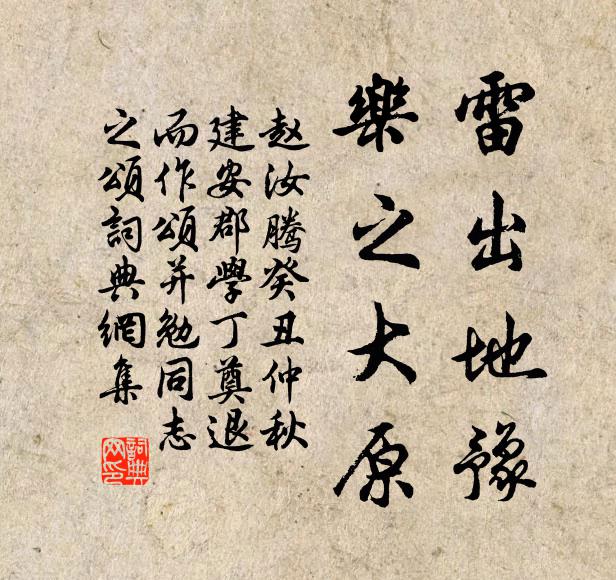 雷出地豫
樂之大原
赵汝腾癸丑仲秋
建安郡學丁奠退
而作頌并勉同志
之頌詞典網集
詞典网印